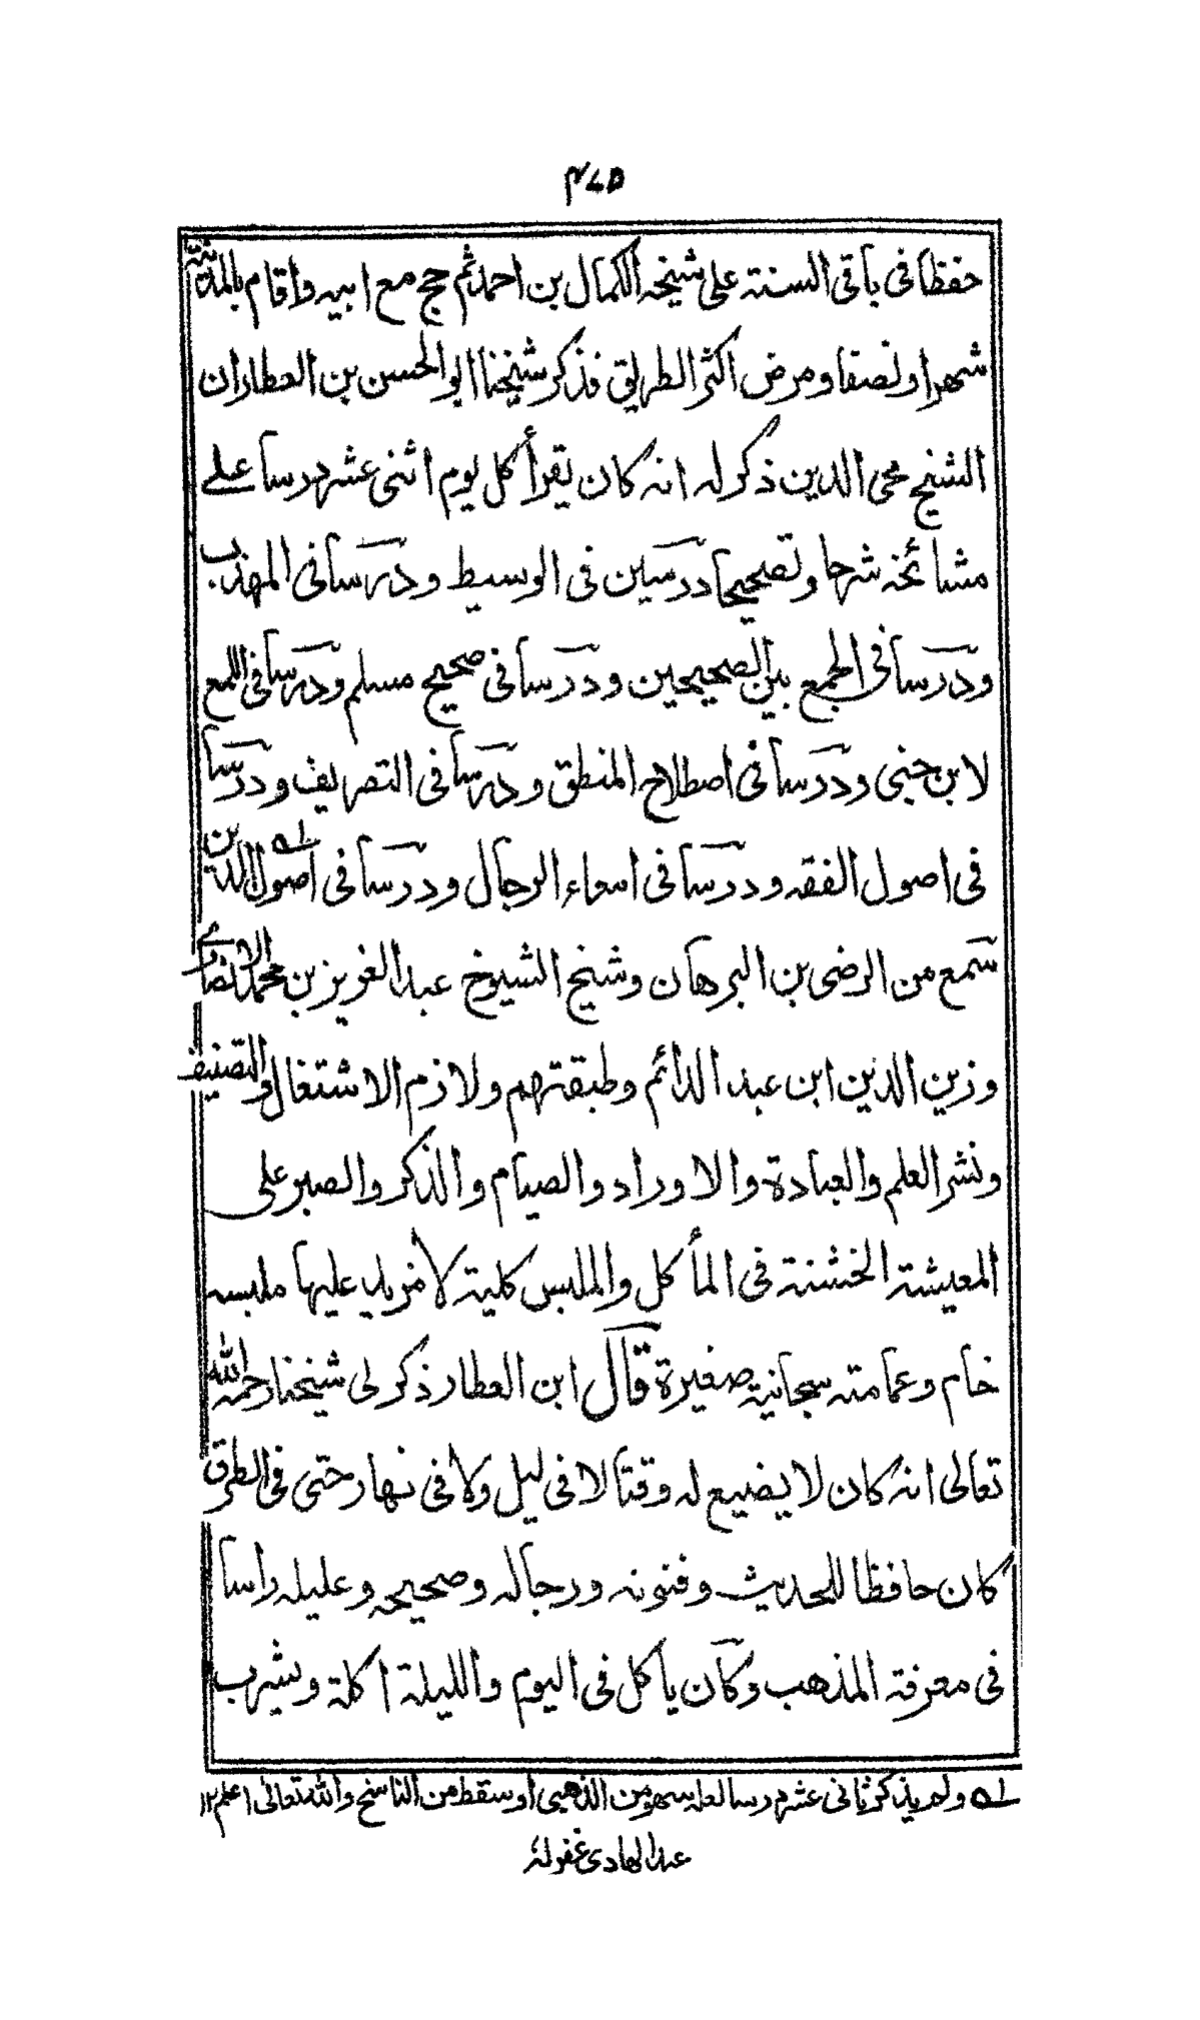 ۴۷۵
حفظا فى باقى السنة على شيخه الكمال بن احمد ثم حج مع ابيه واقام بالمدينة
شهرا ونصفا ومرض اكثر الطريق فذكر شيخنا ابو الحسن بن العطار ان
الشيخ محى الدين ذكر له انه كان يقرأ كل يوم اثنى عشر درسا علے
مشائخه شرحا وتصحيحا درسين فى الوسيط ودرسا فى المهذب
ودرسا فى الجمع بين الصحيحين ودرسا فى صحيح مسلم ودرسا فى اللمع
لابن جنى ودرسا فى اصطلاح المنطق ودرسا فى التصريف ودرسا
فى اصول الفقه ودرسا فى اسماء الرجال ودرسا فى اصول الدين ے۵
سمع من الرضى بن البرهان وشيخ الشيوخ عبد العزيز بن محمد الانصارے
وزين الدين ابن عبد الدائم وطبقتهم ولازم الاشتغال والتصنيف
ونشر العلم والعبادة والاوراد والصيام والذكر والصبر على
المعيشة الخشنة فى المأكل والملبس كلية لا مزيد عليها ملبسه
خام وعمامته سبجانية صغيرة قال ابن العطار ذكر لى شيخنا رحمه الله
تعالى انه كان لا يضيع له وقتا لا فى ليل ولا فى نهار حتى فى الطرق
كان حافظا للحديث وفنونه ورجاله وصحيحه وعليله راسا
فى معرفة المذهب وكان ياكل فى اليوم والليلة اكلة ويشرب
ے۵ ولم يذكر ثانى عشر درسا لعله سهو من الذهبى او سقط من الناسخ والله تعالى اعلم ۱۲
عبد الهادى غفر له